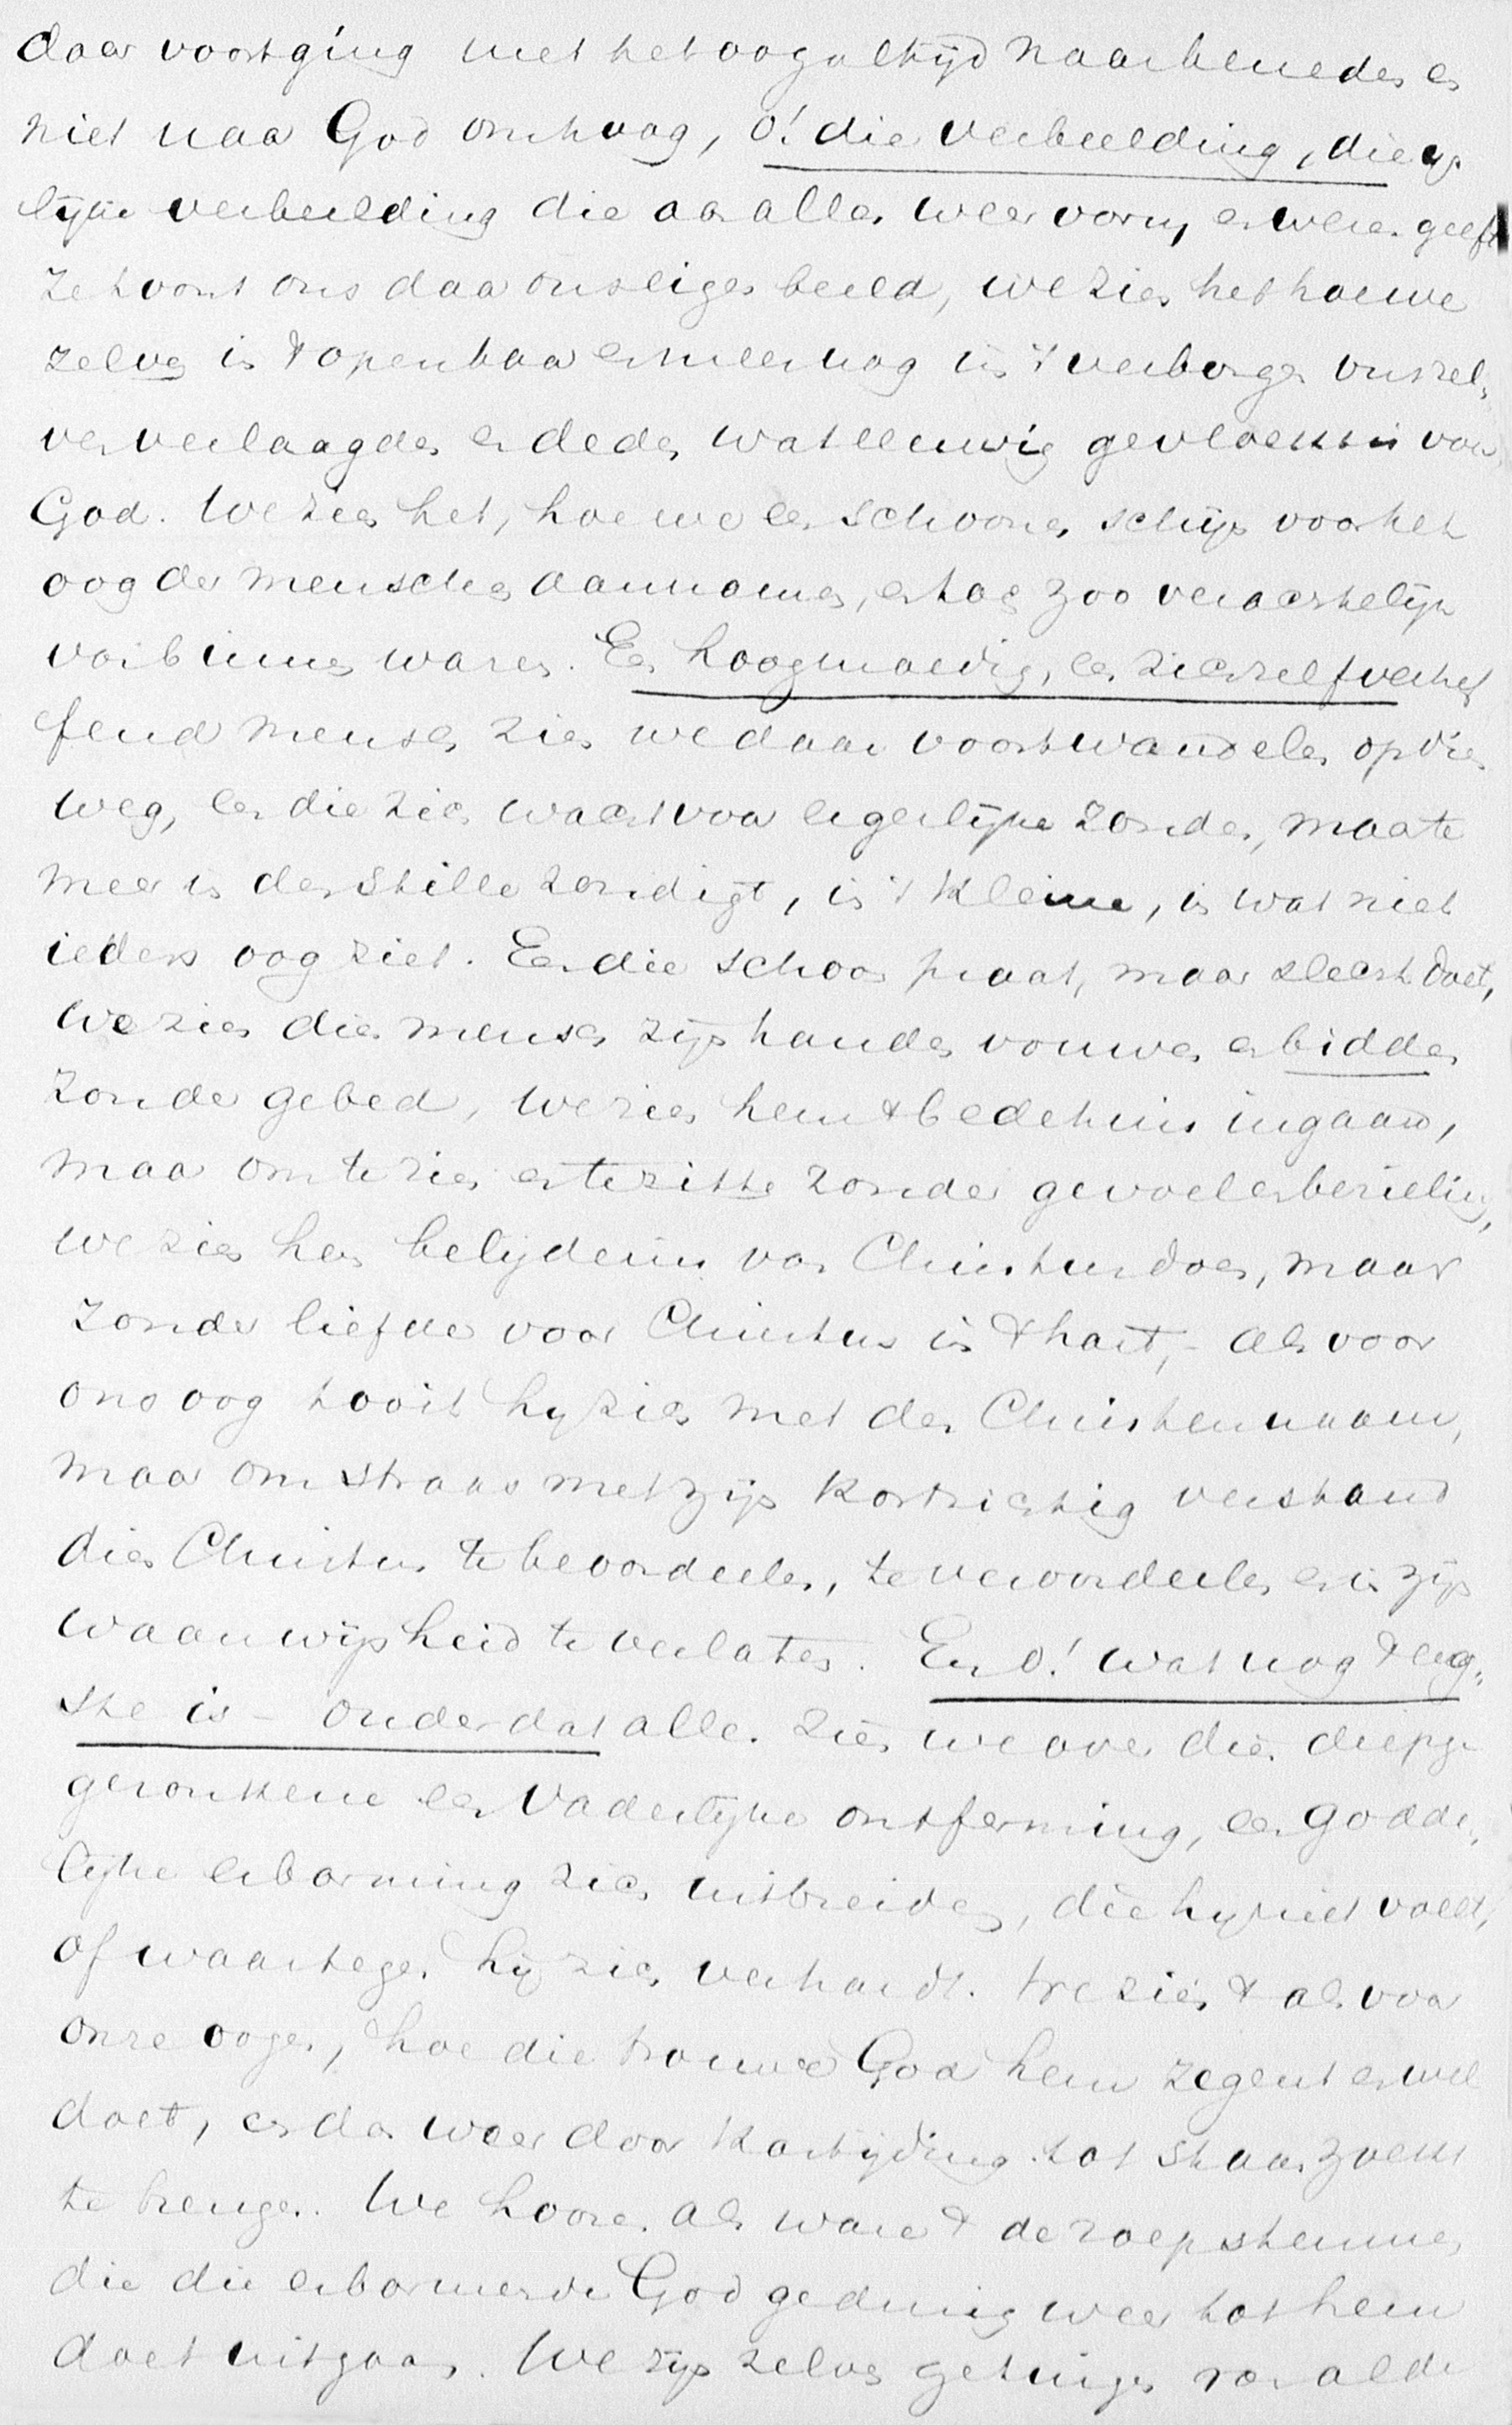 daar voortging met het oog altijd naar beneden en
niet naar God omhoog, o! die verbeelding, die y-
lijke verbeelding die aan alles weer vorm en wezen geeft
ze toont ons daar ons eigen beeld, we zien het hoe we
zelve in 't openbaar en meer nog in 't verborgen ons zel-
ven verlaagden en deden wat eeuwig gevloekt is voor
God. We zien het, hoe we een schoonen schijn voor het
oog der menschen aannamen, en toch zoo verachtelijk
van binnen waren. Een hoogmoedig, een zich zelf verhef
fend mensch zien we daar voortwandelen op dien
weg, een die zich wacht voor ergerlijke zonden, maar te
meer in den stille zondigt, in 't kleine, in wat niet
ieders oog ziet. Een die schoon praat, maar slecht doet,
we zien dien mensch zijn handen vouwen en bidden
zonder gebed, we zien hem 't bedehuis ingaan,
maar om te zien en te zitten zonder gevoel en bezieling,
we zien hem belijdenis van Christus doen, maar
zonder liefde voor Christus in 't hart, - als voor
ons oog tooit hij zich met den Christennaam,
maar om straks met zijn kortzichtig verstand
dien Christus te beoordeelen, te veroordeelen en in zijn
waanwijsheid te verlaten. En o! wat nog 't erg-
ste is - onder dat alles zien we over dien diep
gezonkene een Vaderlijke ontferming, een godde-
lijke erbarming zich uitbreiden, die hij niet voelt,
of waartegen hij zich verhardt. We zien 't als voor
onze oogen, hoe die trouwe God hem zegent en wel
doet, en dan weer door kastijding tot staan zoekt
te brengen. We hooren als ware 't de roepstemmen
die die erbarmende God gedurig weer tot hem
doet uitgaan. We zijn zelve getuigen van al de